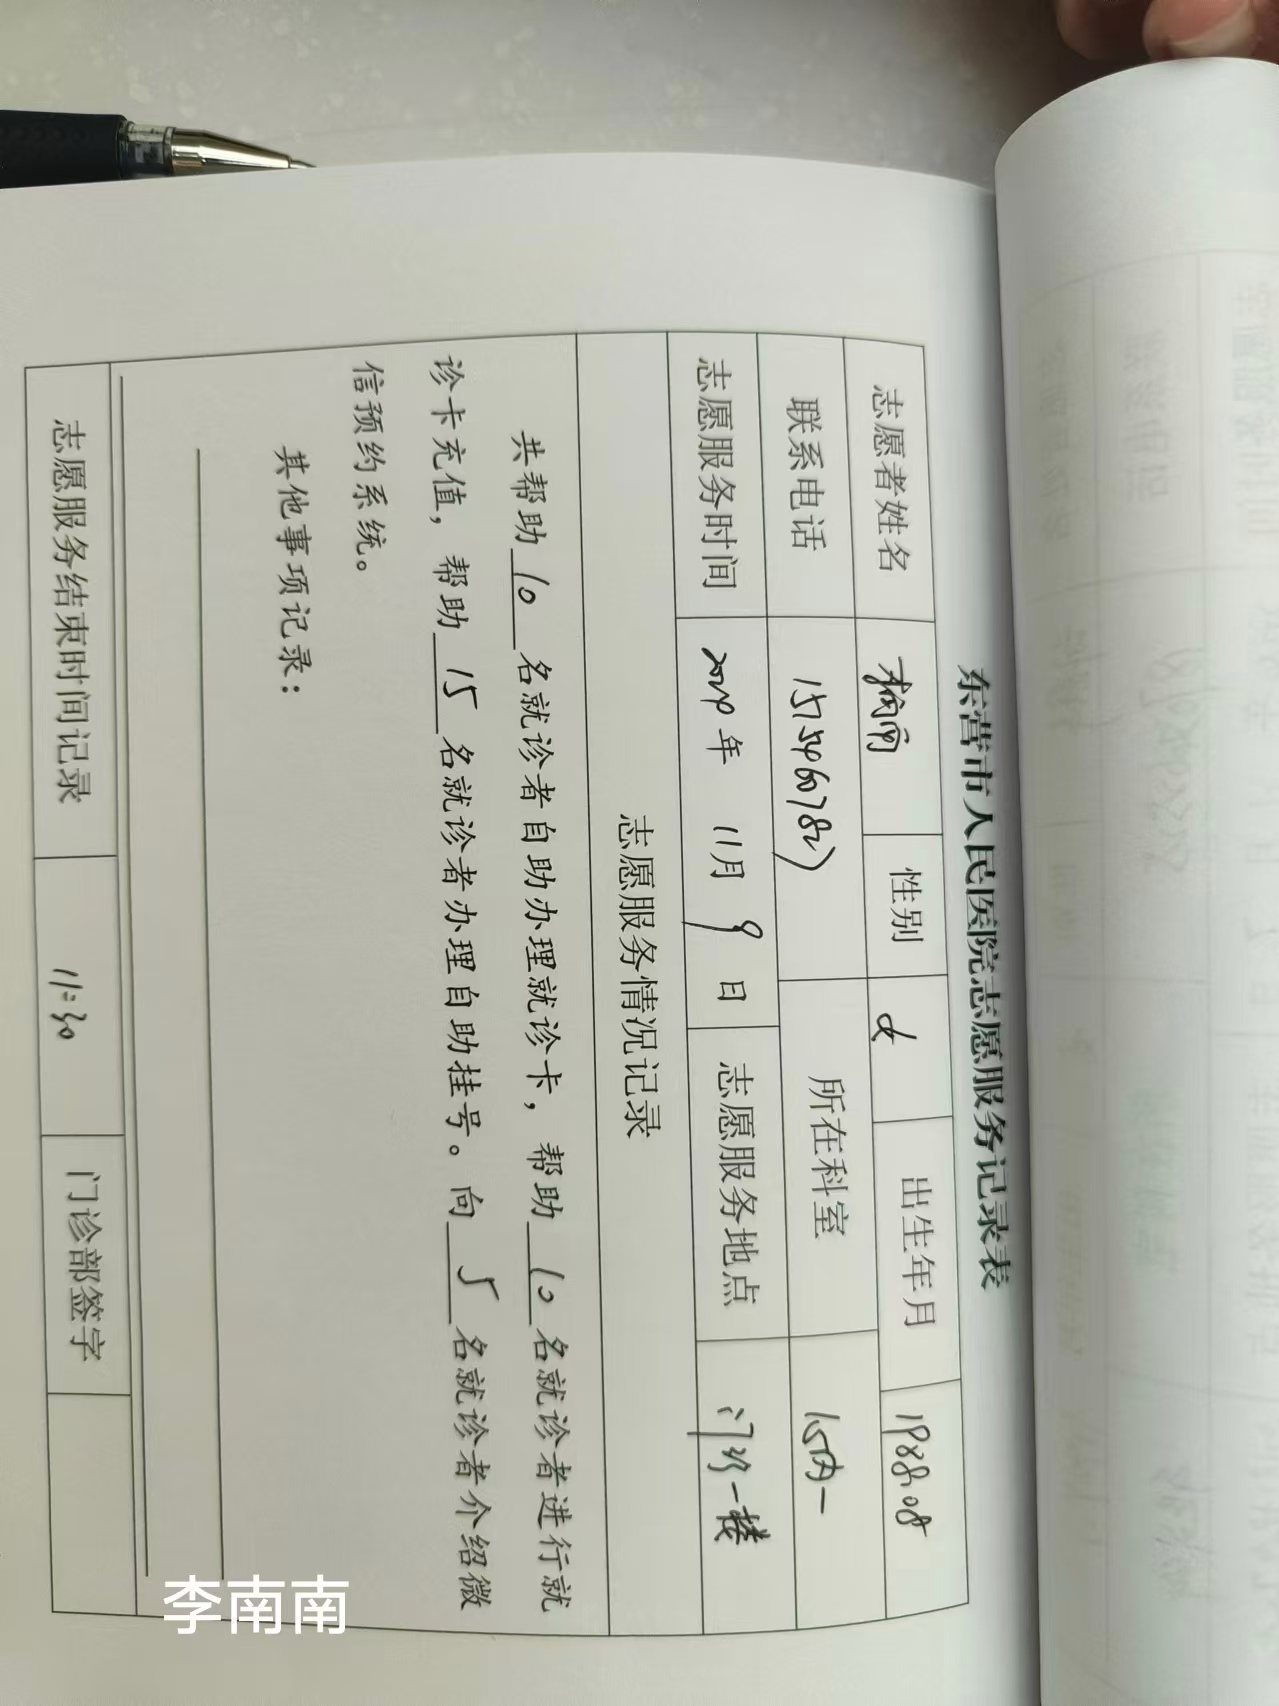 东营市人民医院志愿服务记录表
志愿者姓名 李南南 性别 女 出生年月 1988.08
联系电话 15754660782 所在科室
志愿服务时间 年 11月 9日 志愿服务地点 门诊一楼
志愿服务情况记录
共帮助10名就诊者自助办理就诊卡，帮助10名就诊者进行就
诊卡充值，帮助15名就诊者办理自助挂号。向5名就诊者介绍微
信预约系统。
其他事项记录：
志愿服务结束时间记录 11:30 门诊部签字
李南南